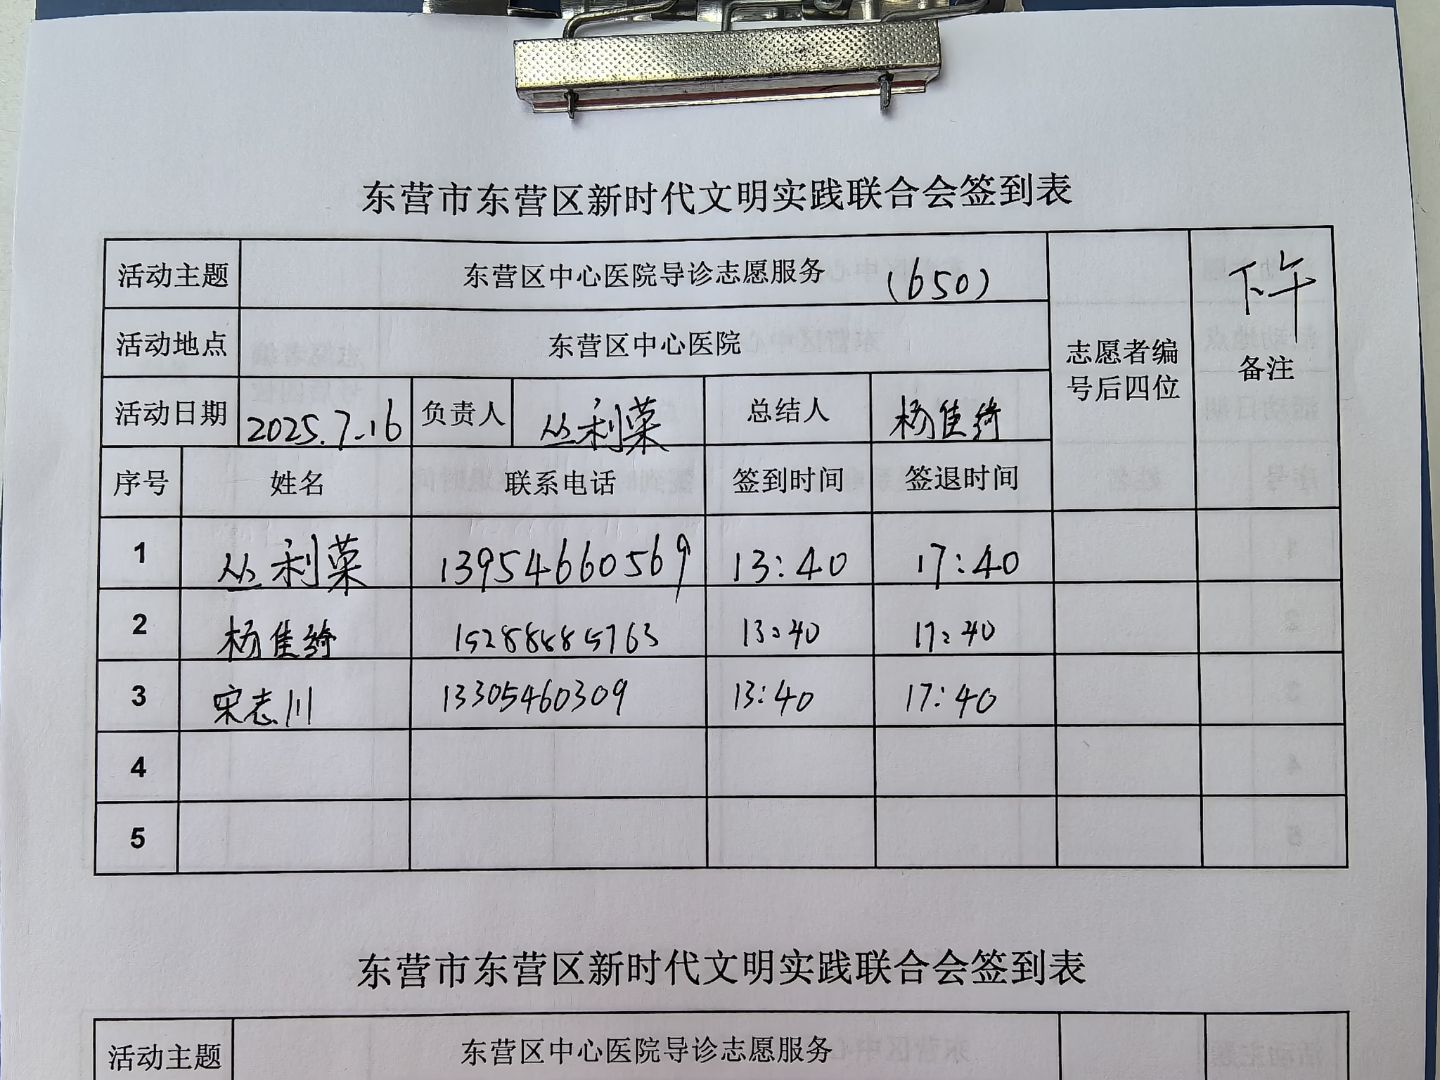 东营市东营区新时代文明实践联合会签到表
活动主题 东营区中心医院导诊志愿服务 (650) 志愿者编号后四位 下午 备注
活动地点 东营区中心医院
活动日期 2025.7.16 负责人 丛利菜 总结人 杨佳绮
序号 姓名 联系电话 签到时间 签退时间
1 丛利菜 13954660569 13:40 17:40
2 杨佳绮 15288885763 13:40 17:40
3 宋志川 13305460309 13:40 17:40
4
5
东营市东营区新时代文明实践联合会签到表
活动主题 东营区中心医院导诊志愿服务